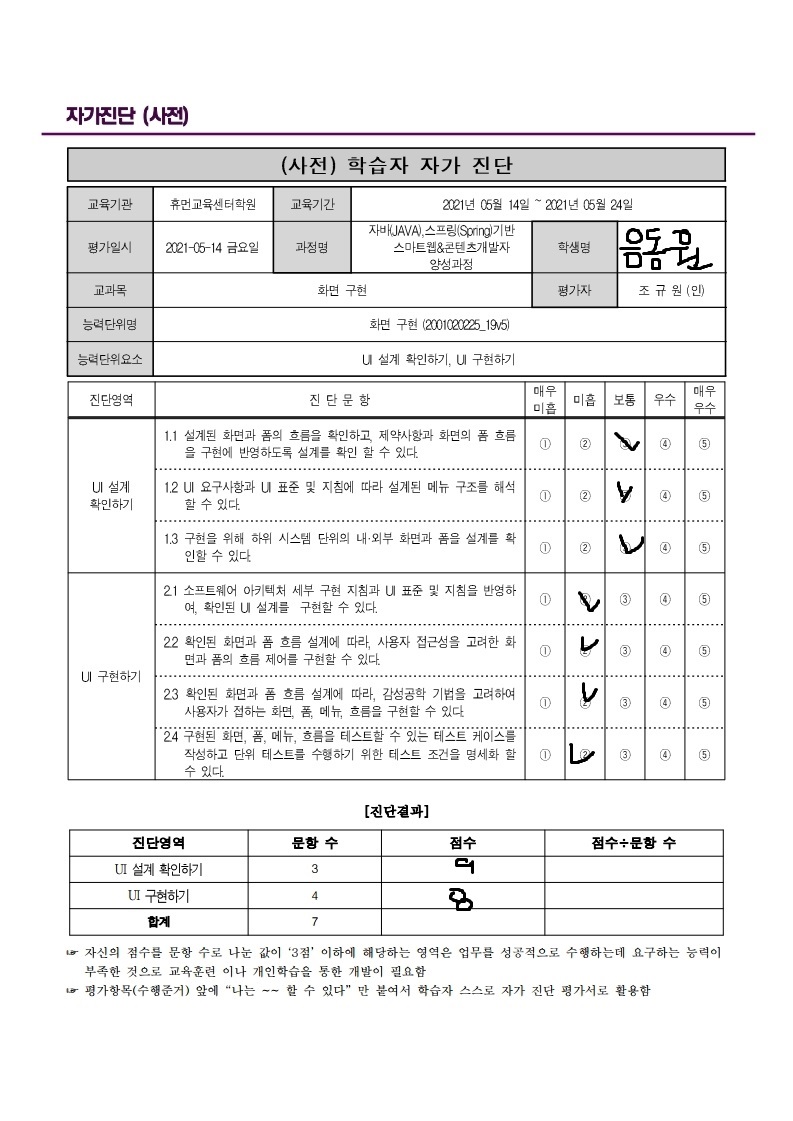 자가진단 (사전)
(사전) 학습자 자가 진단
교육기관 휴먼교육센터학원 교육기간 2021년 05월 14일 ~ 2021년 05월 24일
평가일시 2021-05-14 금요일 과정명 자바(JAVA),스프링(Spring)기반
스마트웹&콘텐츠개발자
양성과정
학생명 음동원
교과목 화면 구현 평가자 조 규 원 (인)
능력단위명 화면 구현 (2001020225_19v5)
능력단위요소 UI 설계 확인하기, UI 구현하기
진단영역 진 단 문 항 매우 미흡 미흡 보통 우수 매우 우수
UI 설계 확인하기
1.1 설계된 화면과 폼의 흐름을 확인하고, 제약사항과 화면의 폼 흐름
을 구현에 반영하도록 설계를 확인 할 수 있다. ① ② ③ ④ ⑤
1.2 UI 요구사항과 UI 표준 및 지침에 따라 설계된 메뉴 구조를 해석
할 수 있다. ① ② ③ ④ ⑤
1.3 구현을 위해 하위 시스템 단위의 내·외부 화면과 폼을 설계를 확
인할 수 있다. ① ② ③ ④ ⑤
UI 구현하기
2.1 소프트웨어 아키텍처 세부 구현 지침과 UI 표준 및 지침을 반영하
여, 확인된 UI 설계를 구현할 수 있다. ① ② ③ ④ ⑤
2.2 확인된 화면과 폼 흐름 설계에 따라, 사용자 접근성을 고려한 화
면과 폼의 흐름 제어를 구현할 수 있다. ① ② ③ ④ ⑤
2.3 확인된 화면과 폼 흐름 설계에 따라, 감성공학 기법을 고려하여
사용자가 접하는 화면, 폼, 메뉴, 흐름을 구현할 수 있다. ① ② ③ ④ ⑤
2.4 구현된 화면, 폼, 메뉴, 흐름을 테스트할 수 있는 테스트 케이스를
작성하고 단위 테스트를 수행하기 위한 테스트 조건을 명세화 할
수 있다. ① ② ③ ④ ⑤
[진단결과]
진단영역 문항 수 점수 점수÷문항 수
UI 설계 확인하기 3 9
UI 구현하기 4 8
합계 7
☞ 자신의 점수를 문항 수로 나눈 값이 ‘3점’ 이하에 해당하는 영역은 업무를 성공적으로 수행하는데 요구하는 능력이
부족한 것으로 교육훈련 이나 개인학습을 통한 개발이 필요함
☞ 평가항목(수행준거) 앞에 “나는 ~~ 할 수 있다” 만 붙여서 학습자 스스로 자가 진단 평가서로 활용함